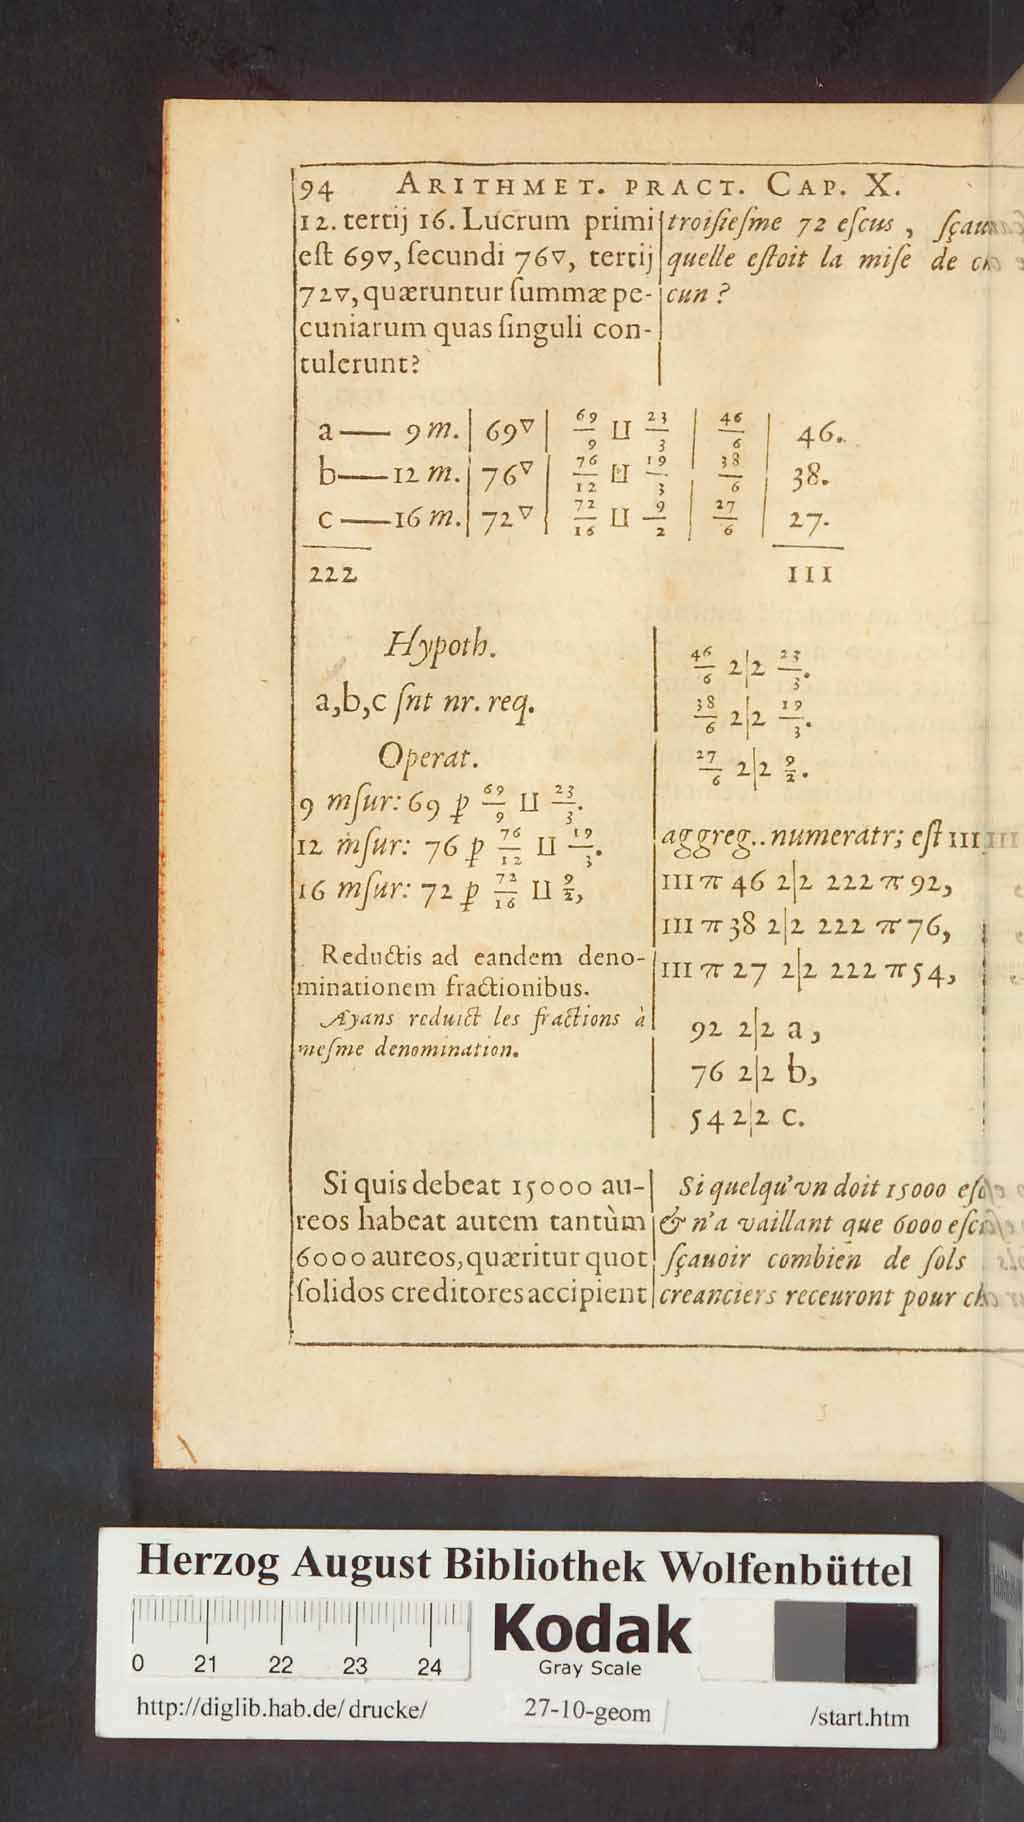 94 ARITHMET. PRACT. CAP. X.
12. tertij 16. Lucrum primi
est 69▽, secundi 76▽, tertij
72▽, quæruntur summæ pe-
cuniarum quas singuli con-
tulerunt?
troisiesme 72 escus ,
quelle estoit la mise de
cun ?
a — 9 m. | 69▽ | 69/9 ⊔ 23/3 | 46/6 | 46.
b — 12 m. | 76▽ | 76/12 ⊔ 19/3 | 38/6 | 38.
c — 16 m. | 72▽ | 72/16 ⊔ 9/2 | 27/6 | 27.
222 111
Hypoth.
a,b,c snt nr. req.
Operat.
9 msur: 69 p 69/9 ⊔ 23/3.
12 msur: 76 p 76/12 ⊔ 19/3.
16 msur: 72 p 72/16 ⊔ 9/2,
Reductis ad eandem deno-
minationem fractionibus.
Ayans reduict les fractions à
mesme denomination.
46/6 2|2 23/3.
38/6 2|2 19/3.
27/6 2|2 9/2.
aggreg.. numeratr; est 111
111 π 46 2|2 222 π 92,
111 π 38 2|2 222 π 76,
111 π 27 2|2 222 π 54,
92 2|2 a,
76 2|2 b,
54 2|2 c.
Si quis debeat 15000 au-
reos habeat autem tantùm
6000 aureos, quæritur quot
solidos creditores accipient
Si quelqu'vn doit 15000
& n'a vaillant que 6000
sçauoir combien de sols
creanciers receuront pour
Herzog August Bibliothek Wolfenbüttel
0 21 22 23 24
Kodak
Gray Scale
http://diglib.hab.de/drucke/ 27-10-geom /start.htm